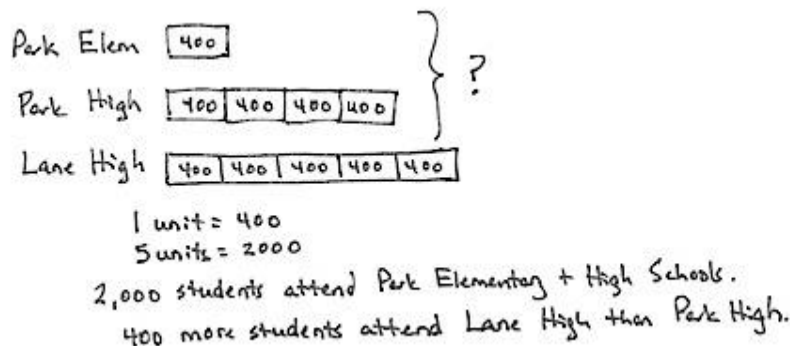 Park Elem 400
?
Park High 400 400 400 400
Lane High 400 400 400 400 400
1 unit = 400
5 units = 2000
2,000 students attend Park Elementary + High Schools.
400 more students attend Lane High than Park High.